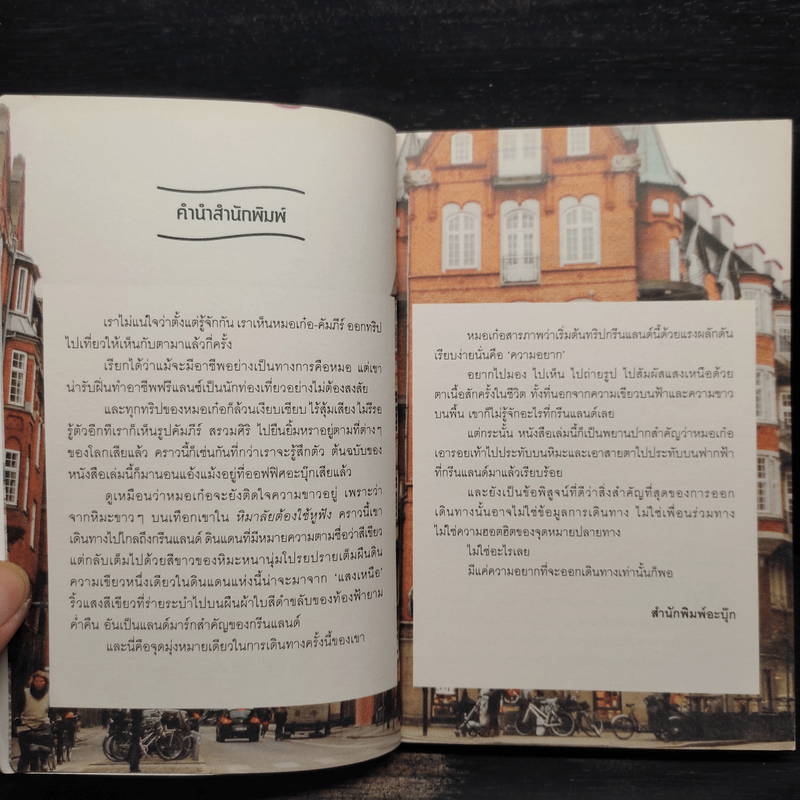 คำนำสำนักพิมพ์
เราไม่แน่ใจว่าตั้งแต่รู้จักกัน เราเห็นหมอเก๋อ-คัมภีร์ ออกทริป
ไปเที่ยวให้เห็นกับตามาแล้วกี่ครั้ง
เรียกได้ว่าแม้จะมีอาชีพอย่างเป็นทางการคือหมอ แต่เขา
น่ารับฝิ่นทำอาชีพฟรีแลนซ์เป็นนักท่องเที่ยวอย่างไม่ต้องสงสัย
และทุกทริปของหมอเก๋อก็ล้วนเงียบเชียบ ไร้สุ้มเสียง ไม่รีรอ
รู้ตัวอีกทีเราก็เห็นรูปคัมภีร์ สรวมศิริ ไปยืนยิ้มหราอยู่ตามที่ต่างๆ
ของโลกเสียแล้ว คราวนี้ก็เช่นกันที่กว่าเราจะรู้สึกตัว ต้นฉบับของ
หนังสือเล่มนี้ก็มานอนแอ้งแม้งอยู่ที่ออฟฟิศอะบุ๊กเสียแล้ว
ดูเหมือนว่าหมอเก๋อจะยังติดใจความขาวอยู่ เพราะว่า
จากหิมะขาวๆ บนเทือกเขาใน หิมาลัยต้องใช้หูฟัง คราวนี้เขา
เดินทางไปไกลถึงกรีนแลนด์ ดินแดนที่มีหมายความตามชื่อว่าสีเขียว
แต่กลับเต็มไปด้วยสีขาวของหิมะหนานุ่มโปรยปรายเต็มผืนดิน
ความเขียวหนึ่งเดียวในดินแดนแห่งนี้น่าจะมาจาก 'แสงเหนือ'
ริ้วแสงสีเขียวที่ร่ายระบำไปบนผืนผ้าใบสีดำขลับของท้องฟ้ายาม
ค่ำคืน อันเป็นแลนด์มาร์กสำคัญของกรีนแลนด์
และนี่คือจุดมุ่งหมายเดียวในการเดินทางครั้งนี้ของเขา
หมอเก๋อสารภาพว่าเริ่มต้นทริปกรีนแลนด์นี้ด้วยแรงผลักดัน
เรียบง่ายนั่นคือ 'ความอยาก'
อยากไปมอง ไปเห็น ไปถ่ายรูป ไปสัมผัสแสงเหนือด้วย
ตาเนื้อสักครั้งในชีวิต ทั้งที่นอกจากความเขียวบนฟ้าและความขาว
บนพื้น เขาก็ไม่รู้จักอะไรที่กรีนแลนด์เลย
แต่กระนั้น หนังสือเล่มนี้ก็เป็นพยานปากสำคัญว่าหมอเก๋อ
เอารอยเท้าไปประทับบนหิมะและเอาสายตาไปประทับบนฟากฟ้า
ที่กรีนแลนด์มาแล้วเรียบร้อย
และยังเป็นข้อพิสูจน์ที่ดีว่าสิ่งสำคัญที่สุดของการออก
เดินทางนั้นอาจไม่ใช่ข้อมูลการเดินทาง ไม่ใช่เพื่อนร่วมทาง
ไม่ใช่ความฮอตฮิตของจุดหมายปลายทาง
ไม่ใช่อะไรเลย
มีแค่ความอยากที่จะออกเดินทางเท่านั้นก็พอ
สำนักพิมพ์อะบุ๊ก